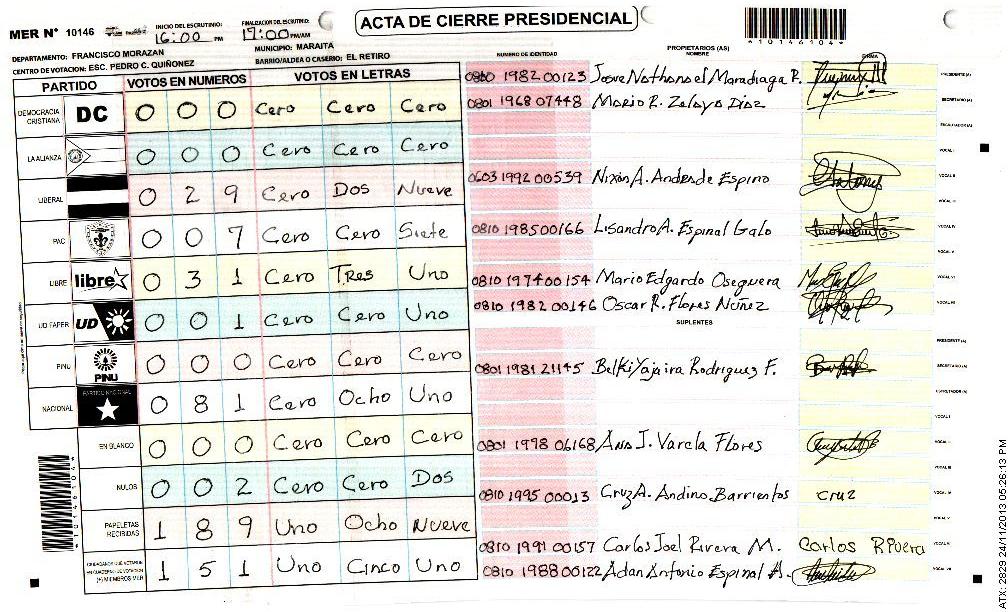 ACTA DE CIERRE PRESIDENCIAL
MER N° 10146
INICIO DEL ESCRUTINIO: 16:00 PM
FINALIZACION DEL ESCRUTINIO: 17:00 PM/AM
*10146104*
DEPARTAMENTO: FRANCISCO MORAZAN
MUNICIPIO: MARAITA
CENTRO DE VOTACION: ESC. PEDRO C. QUIÑONEZ
BARRIO/ALDEA O CASERIO: EL RETIRO
PARTIDO VOTOS EN NUMEROS VOTOS EN LETRAS
DEMOCRACIA CRISTIANA DC 0 0 0 Cero Cero Cero
LA ALIANZA 0 0 0 Cero Cero Cero
LIBERAL 0 2 9 Cero Dos Nueve
PAC 0 0 7 Cero Cero Siete
LIBRE libre 0 3 1 Cero Tres Uno
UD FAPER UD 0 0 1 Cero Cero Uno
PINU PINU 0 0 0 Cero Cero Cero
NACIONAL PARTIDO NACIONAL 0 8 1 Cero Ocho Uno
EN BLANCO 0 0 0 Cero Cero Cero
NULOS 0 0 2 Cero Cero Dos
PAPELETAS RECIBIDAS 1 8 9 Uno Ocho Nueve
CIUDADANOS QUE VOTARON EN CUADERNO DE VOTACION (+) MIEMBROS MER 1 5 1 Uno Cinco Uno
*10146104*
PROPIETARIOS (AS)
NUMERO DE IDENTIDAD NOMBRE FIRMA
1982 00123 Josue Nathanael Maradiaga R. PRESIDENTE (A)
0801 1968 07448 Mario R. Zelaya Diaz SECRETARIO (A)
ESCRUTADOR (A)
VOCAL I
0603 1992 00539 Nixon A. Andrade Espino VOCAL II
VOCAL III
0810 1985 00166 Lisandro A. Espinal Galo VOCAL IV
VOCAL V
0810 1974 00154 Mario Edgardo Oseguera VOCAL VI
0810 1982 00146 Oscar R. Flores Nuñez VOCAL VII
SUPLENTES
PRESIDENTE (A)
0801 1981 21145 Belki Yajaira Rodriguez F. SECRETARIO (A)
ESCRUTADOR (A)
VOCAL I
0801 1998 06168 Ana J. Varela Flores VOCAL II
VOCAL III
0810 1995 00013 Cruz A. Andino Barrientos cruz VOCAL IV
VOCAL V
0810 1991 00157 Carlos Joel Rivera M. Carlos Rivera VOCAL VI
0810 1988 00122 Adan Antonio Espinal A. VOCAL VII
ATX: 2829 24/11/2013 05:26:13 PM